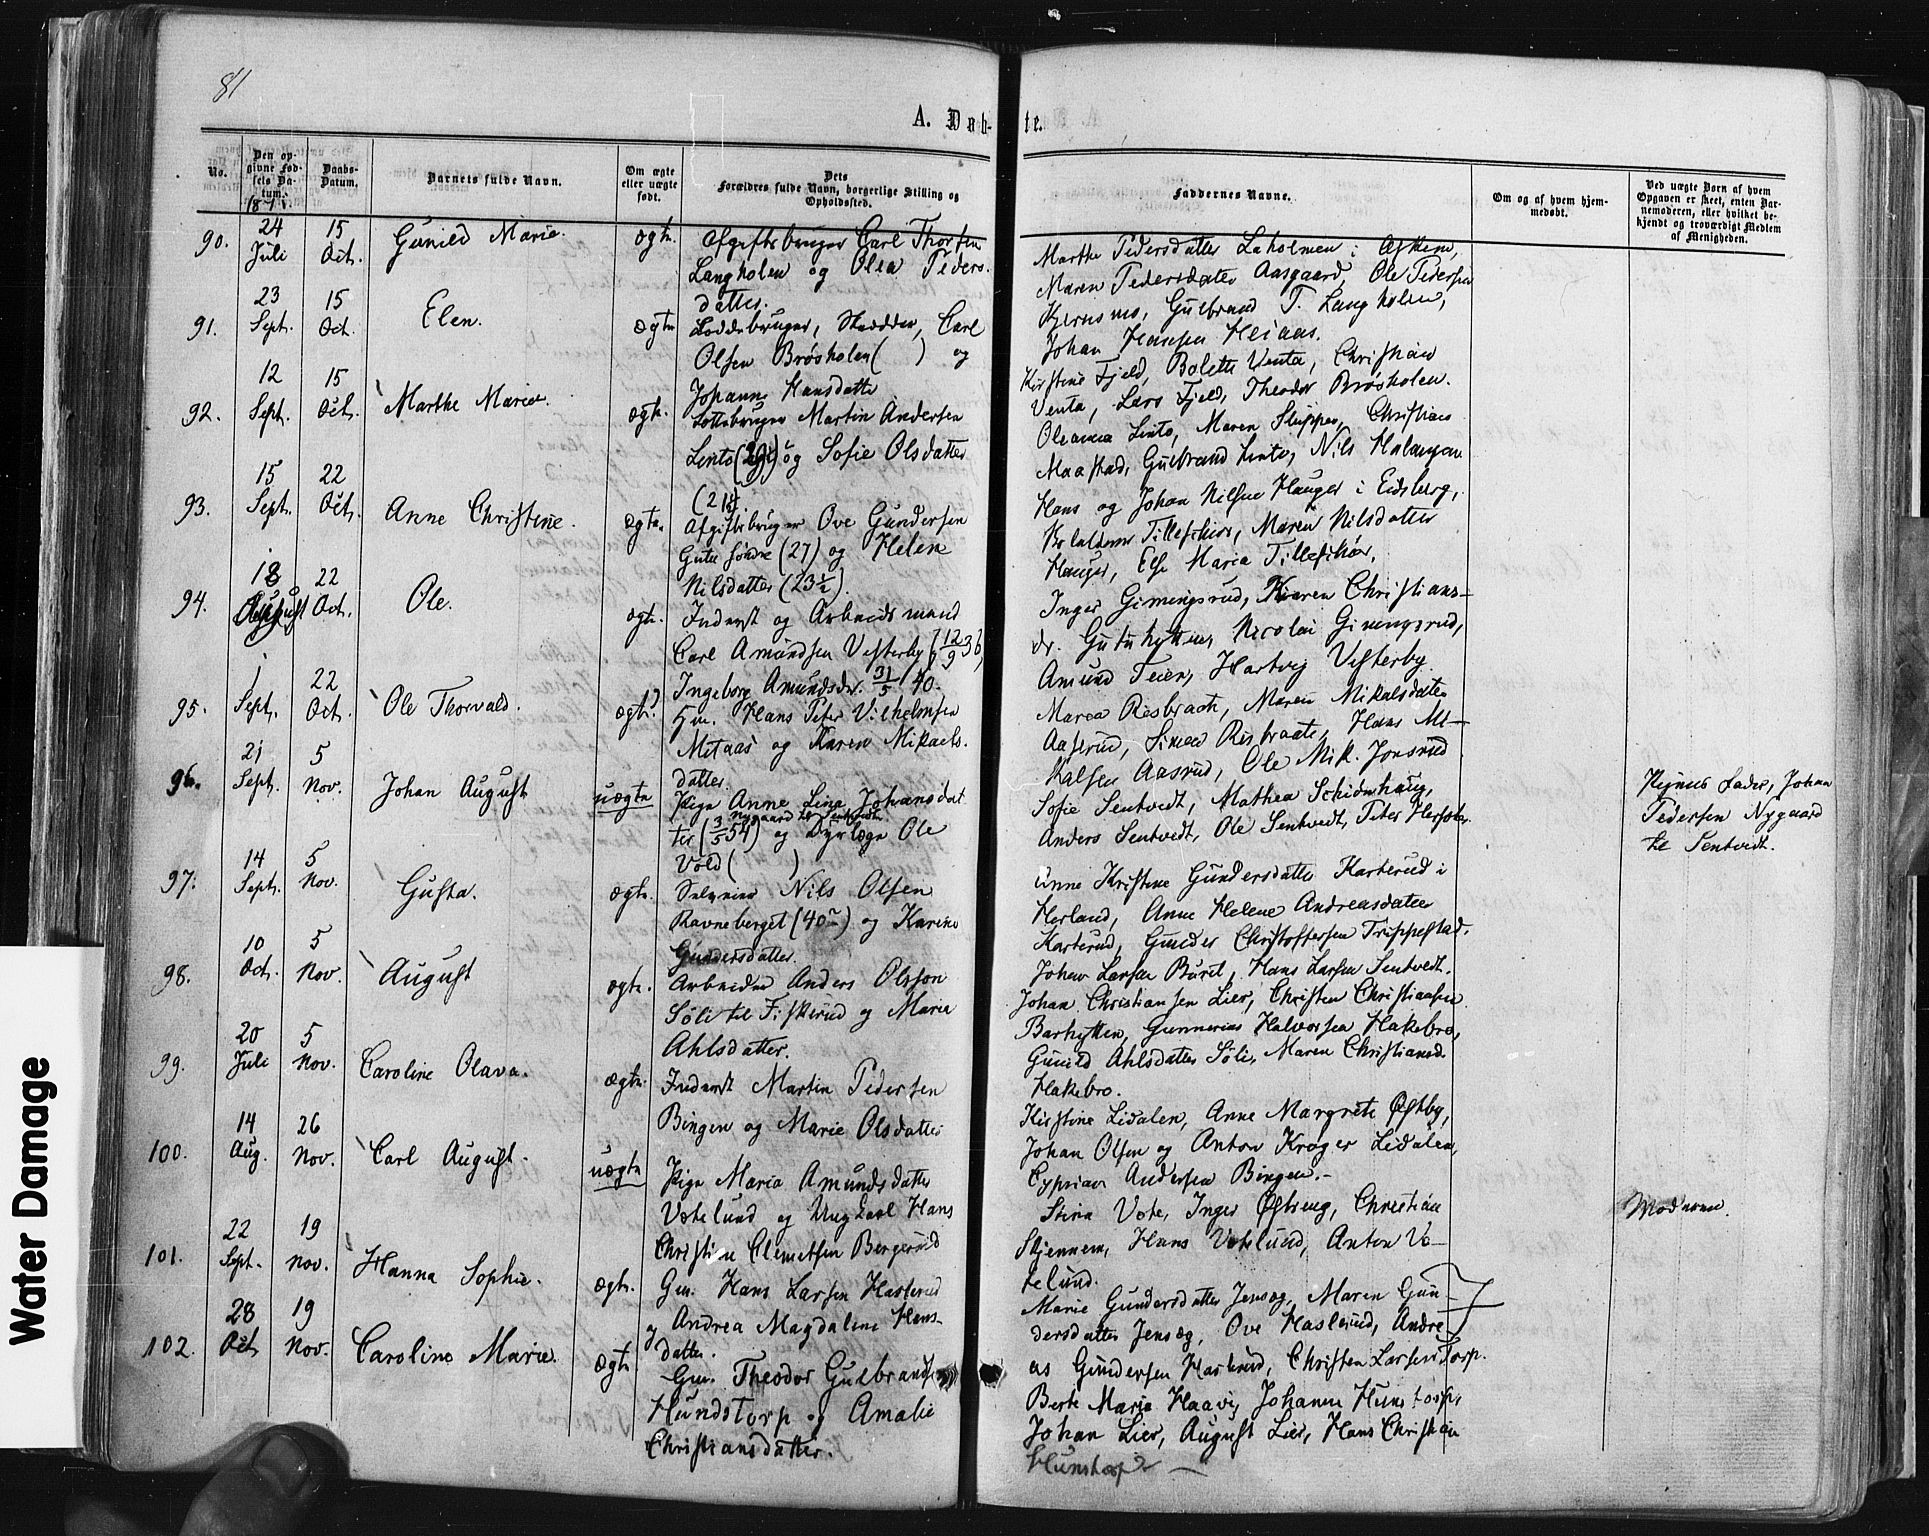 81
A. Døb-
te.
No.
Den op-
givne Fød-
sels Da-
tum.
Daabs-
Datum.
Barnets fulde Navn.
Om ægte
eller uægte
født.
Dets
Forældres fulde Navn, borgerlige Stilling og
Opholdssted.
Faddernes Navne.
Om og af hvem hjem-
medøbt.
Ved uægte Børn af hvem
Opgaven er skeet, enten Bar-
nemoderen, eller hvilket be-
kjendt og troværdigt Medlem
af Menigheden.
90.
24
Juli
15
Oct.
Gunild Marie.
ægte.
Afgiftsbruger Carl Thorsen
Langholen og Olea Peders-
datter.
Marthe Pedersdatter Laholmen i Askim,
Maren Pedersdatter Aasgaard, Ole Pedersen
Kjernsmo, Gulbrand T. Langholen,
Johan Hansen Heiaas.
91.
23
Sept.
15
Oct.
Elen.
ægte
Loddebruger, Skrædder, Carl
Olsen Brøsholen ( ) og
Johanne Hansdatter
Kirstine Fjeld, Bolette Venta, Christian
Venta, Lars Fjeld, Theodor Brøsholen.
92.
12
Sept.
15
Oct.
Marthe Marie.
ægte.
Lottebruger Martin Andersen
Linto og Sofie Olsdatter
Oleanna Linto, Maren Slupper, Christian
Maastad, Gulbrand Linto, Nils
93.
15
Sept.
22
Oct.
Anne Christine.
ægte.
Afgiftsbruger Ove Gundersen
Gutu søndre (27) og Helene
Nilsdatter (23½).
Hans og Johan Nilsen Hauger i Eidsberg,
Tilleskiør, Maren Nilsdatter
Hauger, Else Maria Tilleskiør.
94.
18
August
22
Oct.
Ole.
ægte.
Inderst og Arbeidsmand
Carl Amundsen Vesterby (12/9 36)
Ingeborg Amundsdr. 31/5 40.
Inger Gimingsrud, Karen Christians-
dr. Gutuhytten, Nicolai Gimingsrud,
Amund Teier, Hartvig Vesterby.
95.
1
Sept.
22
Oct.
Ole Thorvald.
ægte?
Gm. Hans Peter Vilhelmsen
Mitaas og Karen Mikaels-
datter.
Marea Risbraate, Maren Mikalsdatter
Aaserud, Simen Risbraate, Hans Mi-
kalsen Aasrud, Ole Mik. Jonsrud
96.
21
Sept.
5
Nov.
Johan August
uægte
Pige Anne Lina Johansdat-
Nygaard til Sentvedt
ter (3/5 54) og Dyrlæge Ole
Vold ( )
Sofie Sentvedt, Mathea Schidenhaug,
Anders Sentvedt, Ole Sentvedt, Peter
Pigens Fader, Johan
Pedersen Nygaard
til Sentvidt.
97.
14
Sept.
5
Nov.
Gusta.
ægte.
Selveier Nils Olsen
Ravneberget (40) og Karine
Gundersdatter.
Anne Kristine Gundersdatter Karterud i
Herland, Anne Helene Andreasdatter
Karterud, Gunder Christoffersen Trippestad,
Johan Larsen Buret, Hans Larsen Sentvedt.
98.
10
Oct.
5
Nov.
August
ægte.
Arbeider Anders Olsson
Søli til Fiskerud og Marie
Ahlsdatter.
Johan Christiansen Lier, Christen Christiansen
Barhytten, Gunnerius Halvorsen Hakebro,
Gunild Ahlsdatter Søli, Maren Christiansd.
Hakebro.
99.
20
Juli
5
Nov.
Caroline Olava.
ægte.
Inderst Martin Pedersen
Bingen og Marie Olsdatter
Kirstine Lidalen, Anne Margrete Østby,
Johan Olsen og Anton Krøger Lidalen,
Cyprian Andersen Bingen.-
100.
14
Aug.
26
Nov.
Carl August.
uægte
Pige Maria Amundsdatter
Votelund og Ungkarl Hans
Christian Clemetsen Bergerud
Stina Vote, Inger Østreng, Christian
Skjennem, Hans Votelund, Anton Vo-
telund.
Moderen.
101.
22
Sept.
19
Nov.
Hanna Sophie.
ægte.
Gm. Hans Larsen Haslerud
og Andrea Magdalene Hans-
datter.
Marie Gundersdatter Jensæg, Maren Gun-
dersdatter Jensæg, Ove Haslerud, Andre-
as Gundersen Haslerud, Christen Larsen Torp.
102.
28
Oct.
19
Nov.
Caroline Marie.
ægte
Gm. Theodor Gulbrandsen
Hundstorp og Amalie
Christiansdatter.
Berte Marie Haavi, Johanne Hunstorp,
Johan Lier, August Lier, Hans Christian
Hunstorp
Water Damage